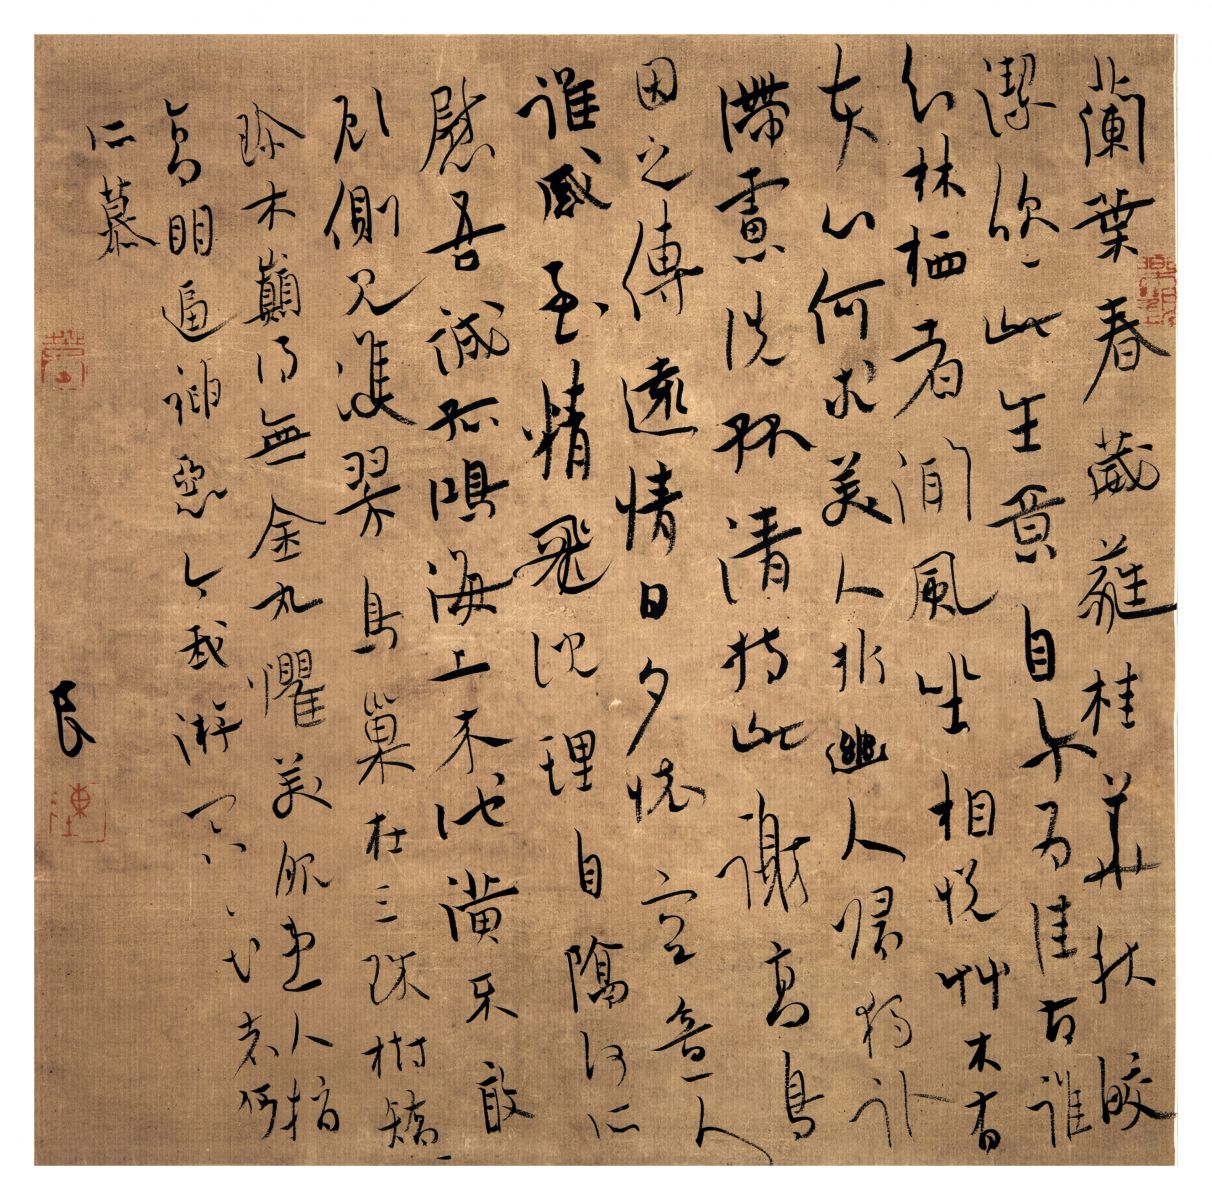 蘭葉春葳蕤桂華秋皎
潔欣〻此生意自尒為佳節誰
知林栖者聞風坐相悅艸木有
本心何求美人折幽人歸獨臥
滯慮洗孤清持此謝高鳥
因之傳遠情日夕懷空意人
誰感至精飛沈理自隔何所
慰吾誠孤鴻海上來池潢不敢
顧側見雙翠鳥巢在三珠樹矯〻
珍木巔得無金丸懼美服患人指
高明逼神惡今我游冥〻弋者何
所慕
良